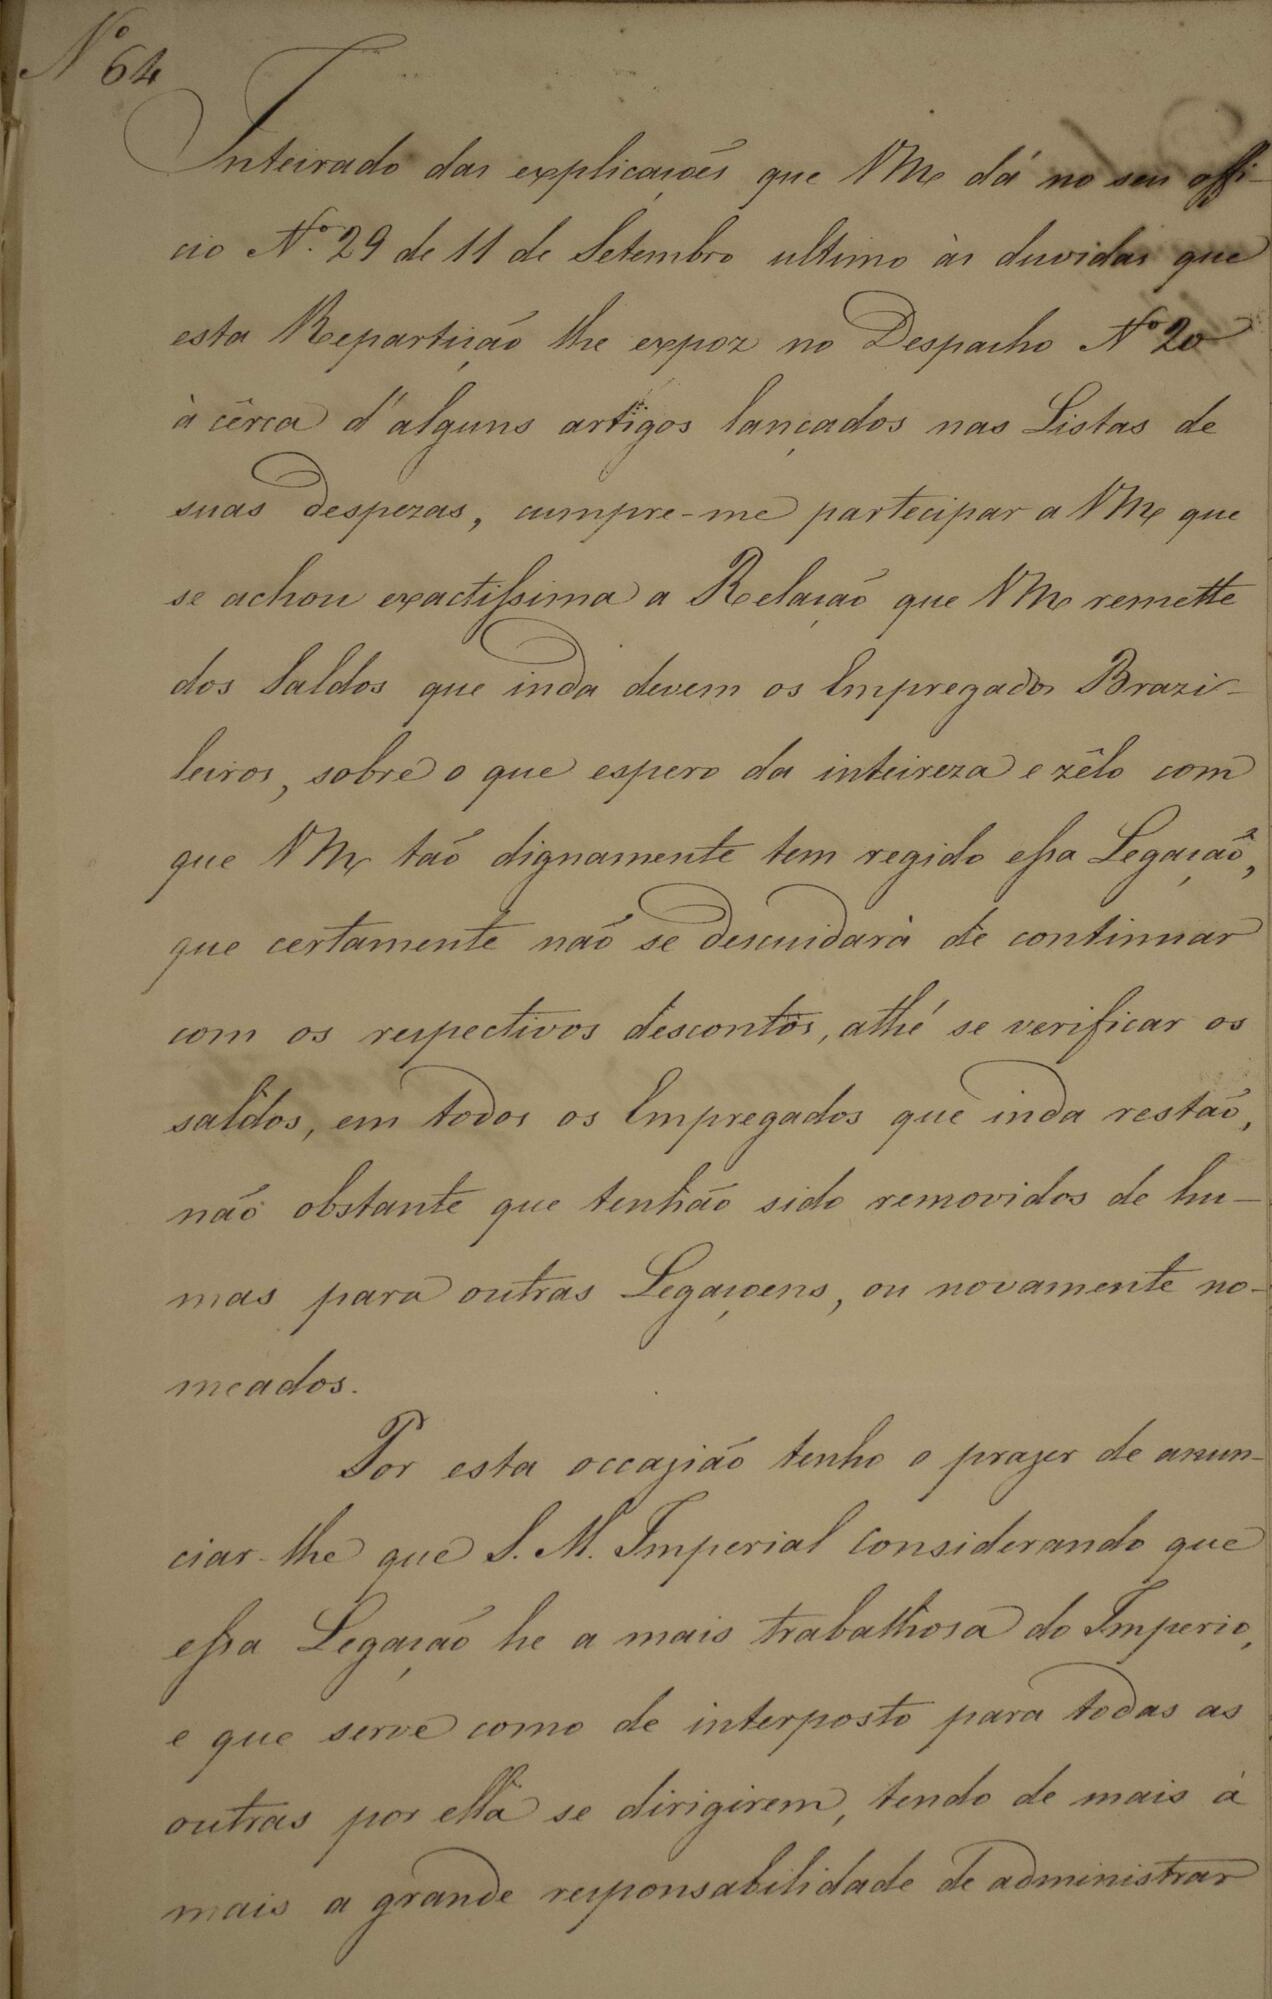 Nº 64
Inteirado das explicaçoẽs que VMce dá no seu offi-
cio Nº 29 de 11 de Setembro ultimo ás duvidas que
esta Repartição lhe expoz no Despacho Nº 20
à cêrca d'alguns artigos lançados nas Listas de
suas despezas, cumpre-me partecipar a VMce que
se achou exactissima a Relação que VMce remette
dos Saldos que inda devem os Empregados Brazi-
leiros, sobre o que espero da inteireza e zêlo com
que VMce tão dignamente tem regido essa Legação,
que certamente não se descuidarà de continuar
com os respectivos descontos, athé se verificar os
saldos, em todos os Empregados que inda restão,
não obstante que tenhão sido removidos de hu-
mas para outras Legaçoens, ou novamente no-
meados.
Por esta occazião tenho o prazer de anun-
ciar-lhe que S. M. Imperial considerando que
essa Legação he a mais trabalhosa do Imperio,
e que serve como de interposto para todas as
outras por ella se dirigirem, tendo de mais á
mais a grande responsabilidade de administrar